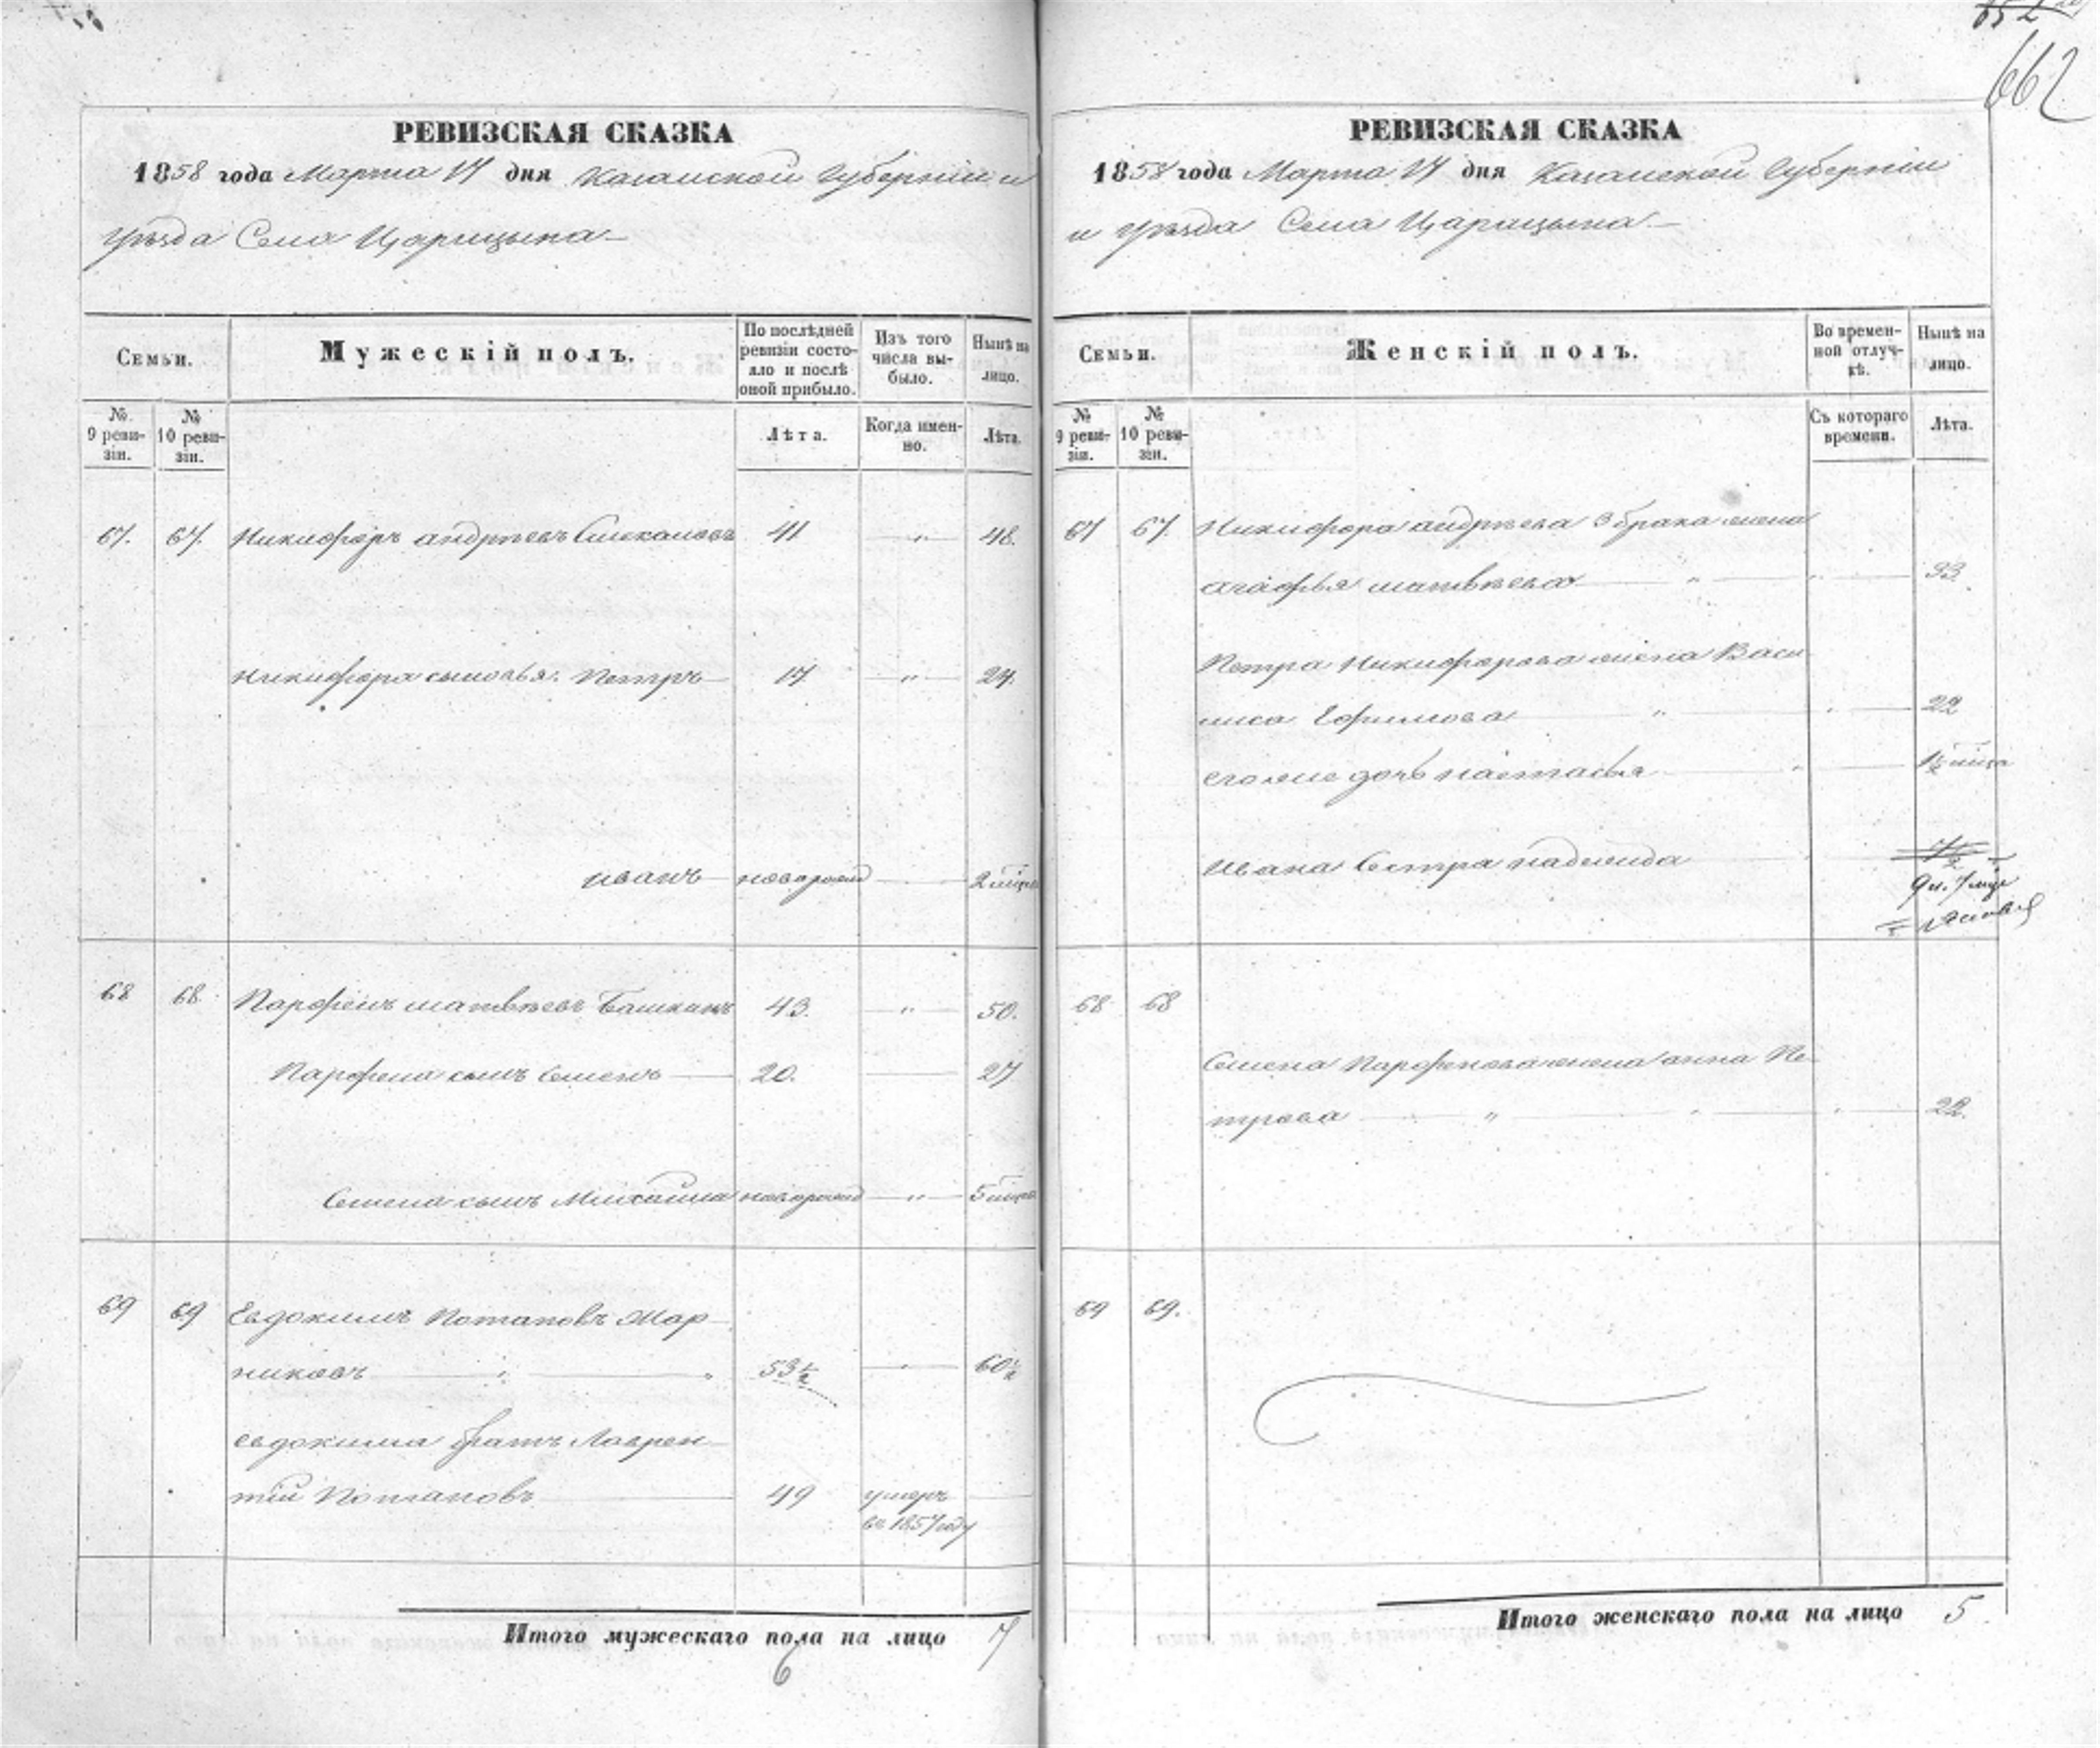 662
РЕВИЗСКАЯ СКАЗКА
1858 года Марта 17 дня Казанской Губерніи и
уѣзда Села Царицына
Семьи.
Мужескій полъ.
По послѣдней ревизіи состояло и послѣ оной прибыло.
Изъ того числа выбыло.
Нынѣ на лицо.
№ 9 ревизіи.
№ 10 ревизіи.
Лѣта.
Когда именно.
Лѣта.
67. 67. Никифоръ андрѣевъ 41 " 48.
Никифора сыновья: Петръ 17 " 24.
иванъ новорожд 2 мѣца
68 68 Парфенъ матвѣевъ Башкинъ 43. " 50.
Парфена сынъ Семенъ 20. 27
Семена сынъ Михайла новорожд " 5 мѣца
69 69 Евдокимъ Потаповъ Мар
никовъ 53½ " 60½
евдокима братъ Лаврен
тій Потаповъ 49 умеръ
въ 1857 году
Итого мужескаго пола на лицо 7
6
РЕВИЗСКАЯ СКАЗКА
1858 года Марта 17 дня Казанской Губерніи
и уѣзда Села Царицына
Семьи.
Женскій полъ.
Во временной отлучкѣ.
Нынѣ на лицо.
№ 9 ревизіи.
№ 10 ревизіи.
Съ котораго времени.
Лѣта.
67 67. Никифора андрѣева 3 брака жена
агафья матвѣева " 33.
Петра Никифорова жена Васи
лиса Ефимова " 22
его же дочь настасья
Ивана Сестра надежда
68 68
Семена Парфенова жена анна Пе
трова " 22.
69 69.
Итого женскаго пола на лицо 5